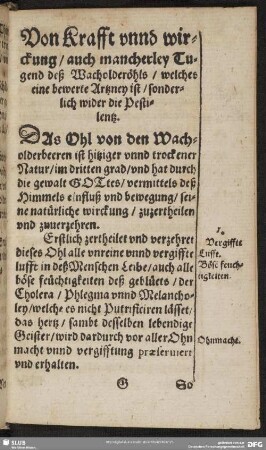 Von Krafft vnnd wir-
ckung / auch mancherley Tu-
gend deß Wacholderöhls / welches
eine bewerte Artzney ist / sonder-
lich wider die Pesti-
lentz.
DAs Ohl von den Wach-
olderbeeren ist hitziger vnnd trockener
Natur / im dritten grad / vnd hat durch
die gewalt GOTtes / vermittels deß
Himmels einfluß vnd bewegung / sei-
ne natürliche wirckung / zuzertheilen
vnd zuuerzehren.
Erstlich zertheilet vnd verzehret
dieses Ohl alle vnreine vnnd vergiffte
lufft in deß Menschen Leibe / auch alle
böse feuchtigkeiten deß geblüets / der
Cholera / Phlegma vnnd Melancho-
ley / welche es nicht Putrificiren lässet /
das hertz / sambt desselben lebendige
Geister / wird dardurch vor aller Ohn
macht vnnd vergifftung præseruiert
vnd erhalten.
1.
Vergiffte
Lufft.
Böse feuch-
tigkeiten.
Ohnmacht.
G So
SLUB